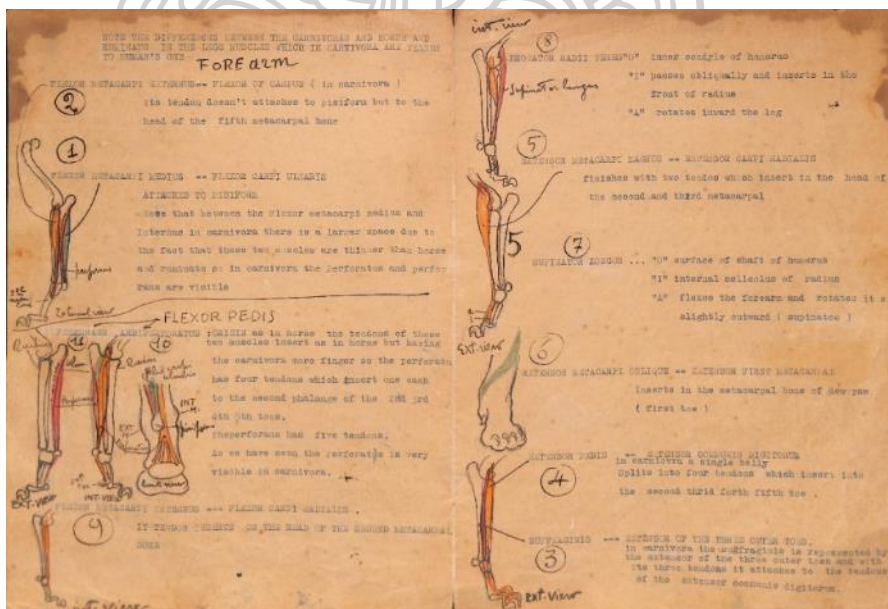 NOTE THE DIFFERENCES BETWEEN THE CARNIVORAS AND HORSE AND
RUMINATE IN THE LEGS MUSCLES WHICH IN CARNIVORA ARE
TO HUMAN'S ONE
FOREarm
FLEXOR METACARPI EXTERNUS-- FLEXOR OF CARPUS ( in carnivora )
2
its tendon doesn't attaches to pisiform but to the
head of the fifth metacarpal bone
1
FLEXOR METACARPI MEDIUS -- FLEXOR CARPI ULNARIS
ATTACHED TO PISIFORM
Note that between the Flexor metacarpi medius and
Internus in carnivora there is a larger space due to
the fact that these two muscles are thinner than horse
and ruminate so in carnivora the Perforatus and perfo
rans are visible
External view
FLEXOR PEDIS
PERFORANS ANDPERFORATUS :ORIGIN as in horse the tendons of these
two muscles insert as in horse but having
the carnivora more finger so the perforatu
has four tendons which insert one each
to the second phalange of the 2nd 3rd
4th 5th toes.
theperforans has five tendons.
as we have seen the perforatus is very
visible in carnivora.
11
10
Radius
INT
EXT
EXT-VIEW
INT-VIEW
FLEXOR METACARPI INTERNUS --- FLEXOR CARPI RADIALIS
9
IT TENDON INSERTS ON THE HEAD OF THE SECOND METACARPAL
BONE
int. view
int. view
8
PRONATOR RADII TERES"O" inner condyle of humerus
"I" passes obliqually and inserts in the
front of radius
"A" rotates inward the leg
Supinator longus
5
EXTENSOR METACARPI MAGNUS -- EXTENSOR CARPI RADIALIS
finishes with two tendos which insert in the head of
the second and third metacarpal
5
7
SUPINATOR LONGUS ... "O" surface of shaft of humerus
"I" internal melleolus of radius
"A" flexes the forearm and rotates it s
slightly outward ( supinates )
EXT-view
6
EXTENSOR METACARPI OBLIQUE -- EXTENSOR FIRST METACARPAL
inserts in the metacarpal bone of dew paw
( first toe )
EXTENSOR PEDIS -- EXTENSOR COMMUNIS DIGITORUM
in carnivora a single belly
4
Splits into four tendons which insert into
the second thrid forth fifth toe .
SUFFRAGINIS --- EXTENSOR OF THE THREE OUTER TOES.
3
in carnivora the suffraginis is represented by
the extensor of the three outer toes and with
its three tendons it attaches to the tendons
of the extensor communis digitorum.
EXT-View